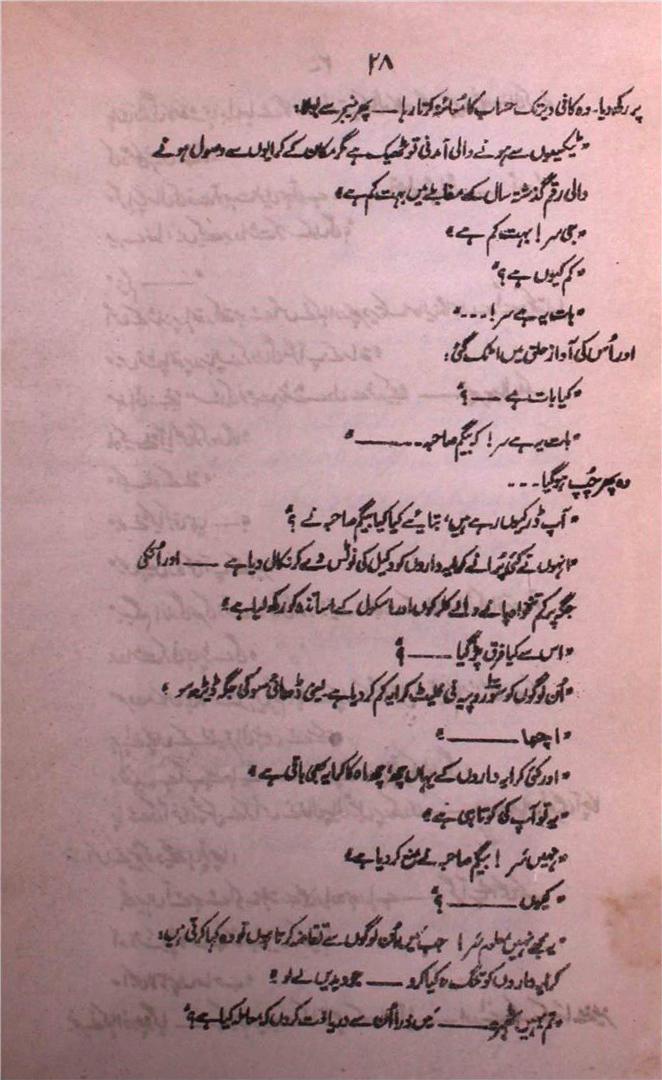 ۲۸
پر رکھ دیا۔ وہ کافی دیر تک حساب کا معائنہ کرتا رہا ـــــ پھر منیجر سے بولا:
"ٹیکسیوں سے ہونے والی آمدنی تو ٹھیک ہے مگر مکان کے کرایوں سے وصول ہونے
والی رقم گذشتہ سال کے مقابلے میں بہت کم ہے"
"جی سر! بہت کم ہے"
"کم کیوں ہے؟"
"بات یہ ہے سر!..."
اور اُس کی آواز حلق میں اٹک گئی:
"کیا بات ہے ــــ؟"
"بات یہ ہے سر! کہ بیگم صاحبہ ـــــــــ"
وہ پھر چُپ ہو گیا ...
"آپ ڈر کیوں رہے ہیں، بتایئے کیا کیا بیگم صاحبہ نے ؟"
"انہوں نے کئی پُرانے کرایہ داروں کو وکیل کی نوٹس دے کر نکال دیا ہے ـــــ اور اُنکی
جگہ پر کم تنخواہ پانے والے کلرکوں اور اسکول کے اساتذہ کو رکھ لیا ہے"
"اس سے کیا فرق پڑ گیا ـــــــ؟"
"اُن لوگوں کو سَو روپیہ فی فلیٹ کرایہ کم کر دیا ہے یعنی ڈھائی سو کی جگہ ڈیڑھ سو"
"اچھا ـــــــــ"
"اور کئی کرایہ داروں کے یہاں چھ، چھ ماہ کا کرایہ بھی باقی ہے"
"یہ تو آپ کی کوتاہی ہے"
"نہیں سَر! بیگم صاحبہ نے منع کر دیا ہے"
"کیوں ـــــــــ؟"
"یہ مجھے نہیں معلوم سَر! جب میں اُن لوگوں سے تقاضہ کرتا ہوں تو وہ کہا کرتی ہیں:
کرایہ داروں کو تنگ نہ کیا کرو ـــــ جو دیں لے لو"
"تم یہیں ٹھہرو ـــــــ میں ذرا اُن سے دریافت کروں کہ معاملہ کیا ہے؟"